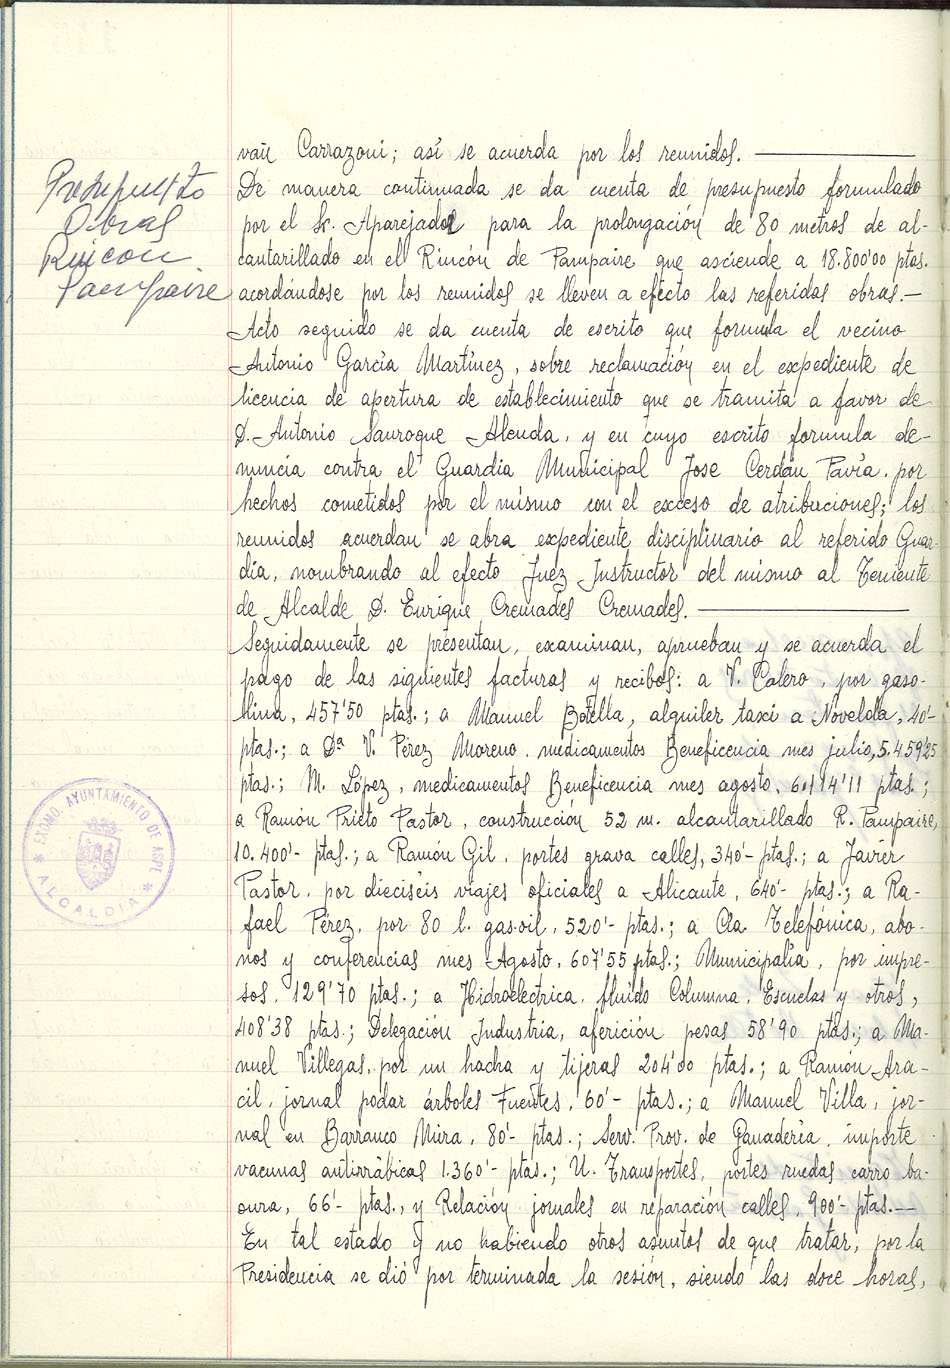 van Carrazoni; así se acuerda por los reunidos.
Presupuesto
Obras
Rincón
Pampaire
De manera continuada se da cuenta de presupuesto formulado
por el Sr. Aparejador para la prolongación de 80 metros de al-
cantarillado en el Rincón de Pampaire que asciende a 18.800'00 ptas.
acordándose por los reunidos se lleven a efecto las referidas obras.—
Acto seguido se da cuenta de escrito que formula el vecino
Antonio García Martínez, sobre reclamación en el expediente de
licencia de apertura de establecimiento que se tramita a favor de
D. Antonio Sauroque Alenda, y en cuyo escrito formula de-
nuncia contra el Guardia Municipal Jose Cerdán Pavía, por
hechos cometidos por el mismo con el exceso de atribuciones; los
reunidos acuerdan se abra expediente disciplinario al referido Guar-
dia, nombrando al efecto Juez Instructor del mismo al Teniente
de Alcalde D. Enrique Cremades Cremades.
Seguidamente se presentan, examinan, aprueban y se acuerda el
pago de las siguientes facturas y recibos: a V. Calero, por gaso-
lina, 457'50 ptas.; a Manuel Botella, alquiler taxi a Novelda, 40'-
ptas.; a Dª V. Pérez Moreno, medicamentos Beneficencia mes julio, 5.459'25
ptas.; M. López, medicamentos Beneficencia mes agosto, 6.114'11 ptas.;
a Ramón Prieto Pastor, construcción 52 m. alcantarillado R. Pampaire,
10.400'- ptas.; a Ramón Gil, portes grava calles, 340'- ptas.; a Javier
Pastor, por dieciséis viajes oficiales a Alicante, 640'- ptas.; a Ra-
fael Pérez, por 80 l. gas-oil, 520'- ptas.; a Cía. Telefónica, abo-
nos y conferencias mes Agosto, 607'55 ptas.; Municipalía, por impre-
sos, 129'70 ptas.; a Hidroeléctrica, fluído Columna, Escuelas y otros,
408'38 ptas.; Delegación Industria, aferición pesas 58'90 ptas.; a Ma-
nuel Villegas, por un hacha y tijeras 204'00 ptas.; a Ramón Ara-
cil, jornal podar árboles Fuentes, 60'- ptas.; a Manuel Villa, jor-
nal en Barranco Mira, 80'- ptas.; Serv. Prov. de Ganadería, importe
vacunas antirrábicas 1.360'- ptas.; U. Transportes, portes ruedas carro ba-
sura, 66'- ptas., y Relación jornales en reparación calles, 900'- ptas.—
En tal estado y no habiendo otros asuntos de que tratar, por la
Presidencia se dió por terminada la sesión, siendo las doce horas,
EXCMO. AYUNTAMIENTO DE ASPE
* ALCALDIA *